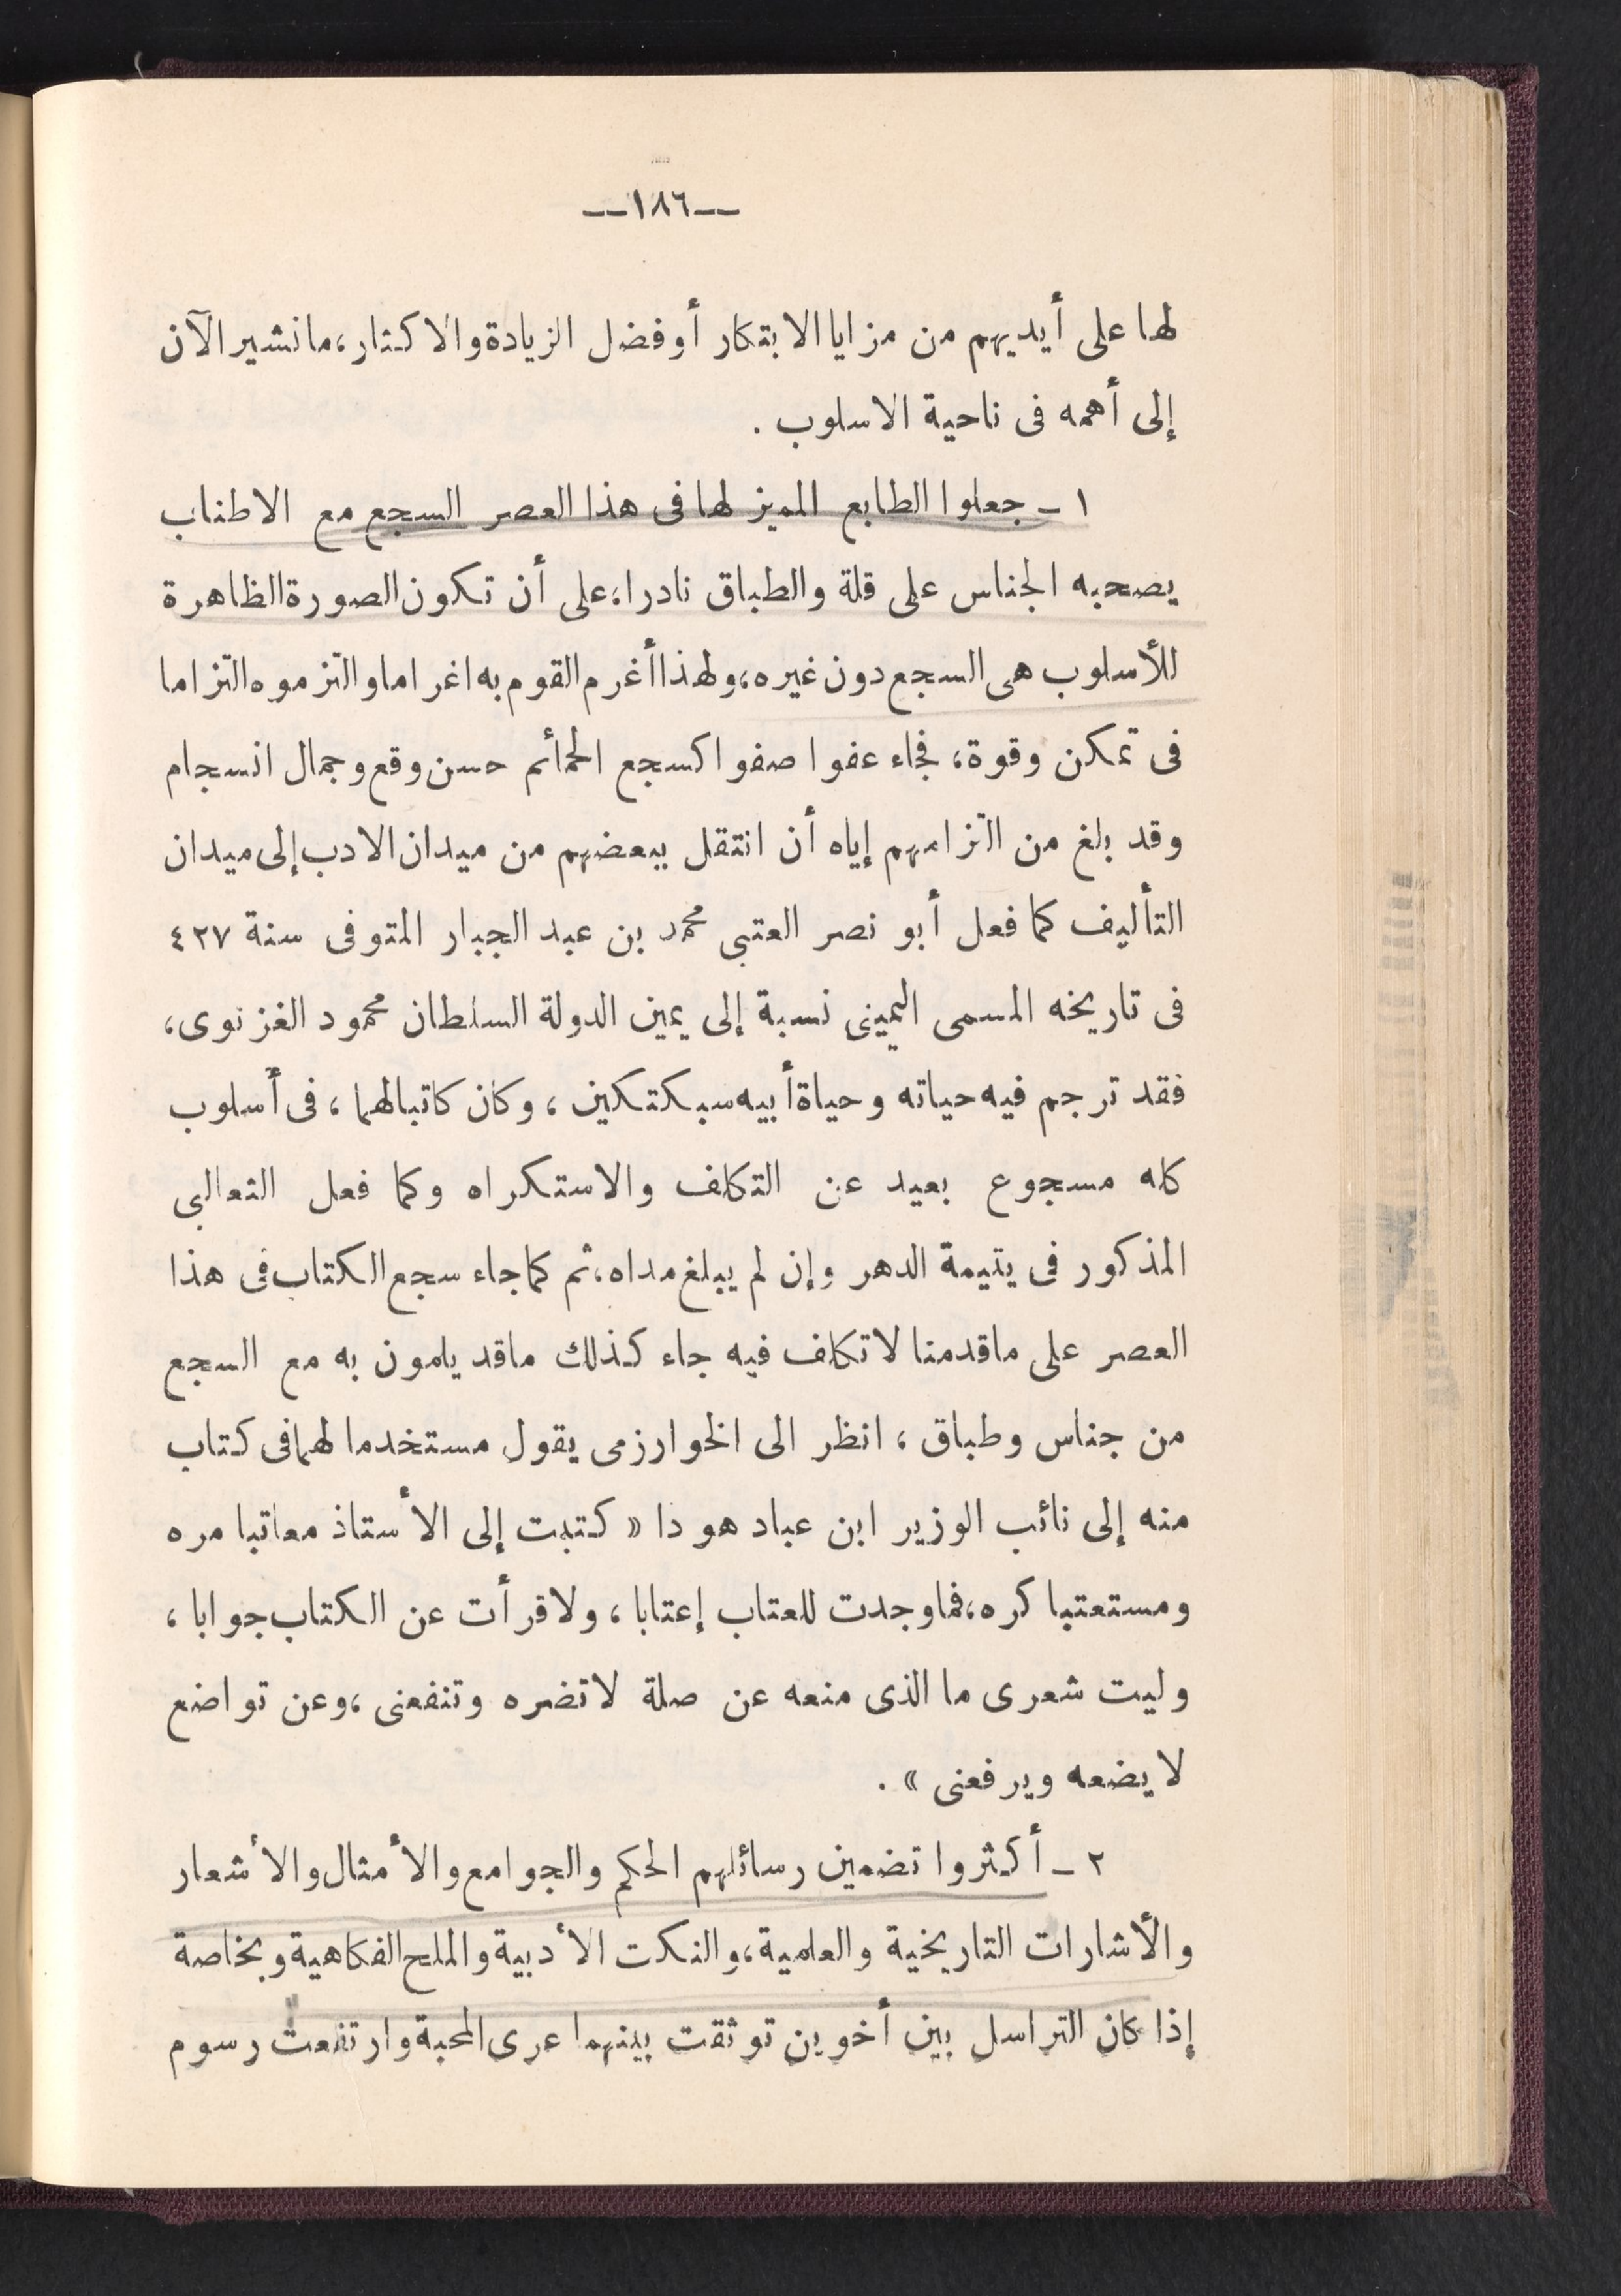 --١٨٦--
لها على أيديهم من مزايا الابتكار أو فضل الزيادة والاكثار، ما نشير الآن
إلى أهمه فى ناحية الاسلوب .
١ ـ جعلوا الطابع المميز لها فى هذا العصر السجع مع الاطناب
يصحبه الجناس على قلة والطباق نادرا، على أن تكون الصورة الظاهرة
للأسلوب هى السجع دون غيره، ولهذا أغرم القوم به اغراما والتزموه التزاما
فى تمكن وقوة، فجاء عفوا صفوا كسجع الحمائم حسن وقع وجمال انسجام
وقد بلغ من التزامهم إياه أن انتقل ببعضهم من ميدان الادب إلى ميدان
التأليف كما فعل أبو نصر العتبى محمد بن عبد الجبار المتوفى سنة ٤٢٧
فى تاريخه المسمى اليمينى نسبة إلى يمين الدولة السلطان محمود الغزنوى،
فقد ترجم فيه حياته وحياة أبيه سبكتكين ، وكان كاتبا لهما ، فى أسلوب
كله مسجوع بعيد عن التكلف والاستكراه وكما فعل الثعالبى
المذكور فى يتيمة الدهر وإن لم يبلغ مداه، ثم كما جاء سجع الكتاب فى هذا
العصر على ما قدمنا لا تكلف فيه جاء كذلك ما قد يلمون به مع السجع
من جناس وطباق ، انظر الى الخوارزمى يقول مستخدما لهما فى كتاب
منه إلى نائب الوزير ابن عباد هو ذا « كتبت إلى الأستاذ معاتبا مره
ومستعتبا كره، فما وجدت للعتاب إعتابا ، ولا قرأت عن الكتاب جوابا ،
وليت شعرى ما الذى منعه عن صلة لا تضره وتنفعنى ، وعن تواضع
لا يضعه ويرفعنى » .
٢ ـ أكثروا تضمين رسائلهم الحكم والجوامع والأمثال والأشعار
والأشارات التاريخية والعلمية، والنكت الأدبية والملح الفكاهية وبخاصة
إذا كان التراسل بين أخوين توثقت بينهما عرى المحبة وارتفعت رسوم